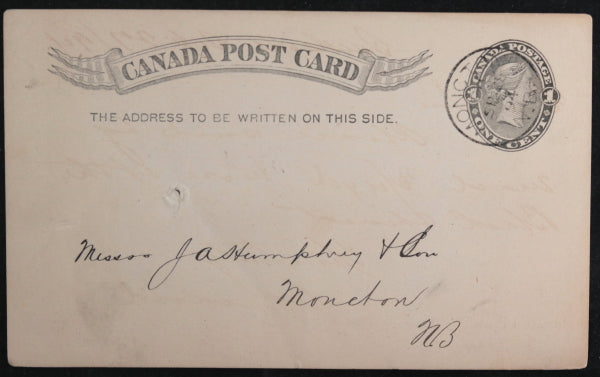 CANADA POST CARD
THE ADDRESS TO BE WRITTEN ON THIS SIDE.
CANADA POSTAGE
1
ONE CENT
MONCT
Messrs J A Humphrey & Son
Moncton
NB